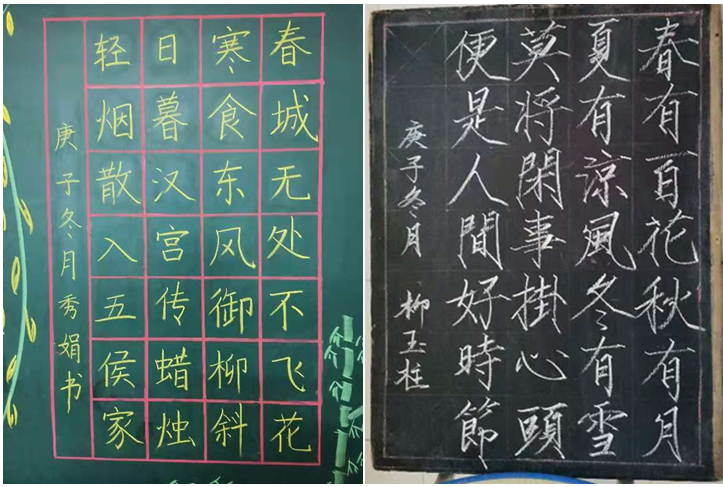 春城无处不飞花
寒食东风御柳斜
日暮汉宫传蜡烛
轻烟散入五侯家
庚子冬月秀娟书
春有百花秋有月
夏有涼風冬有雪
莫将閑事掛心頭
便是人間好時節
庚子冬月 柳玉柱